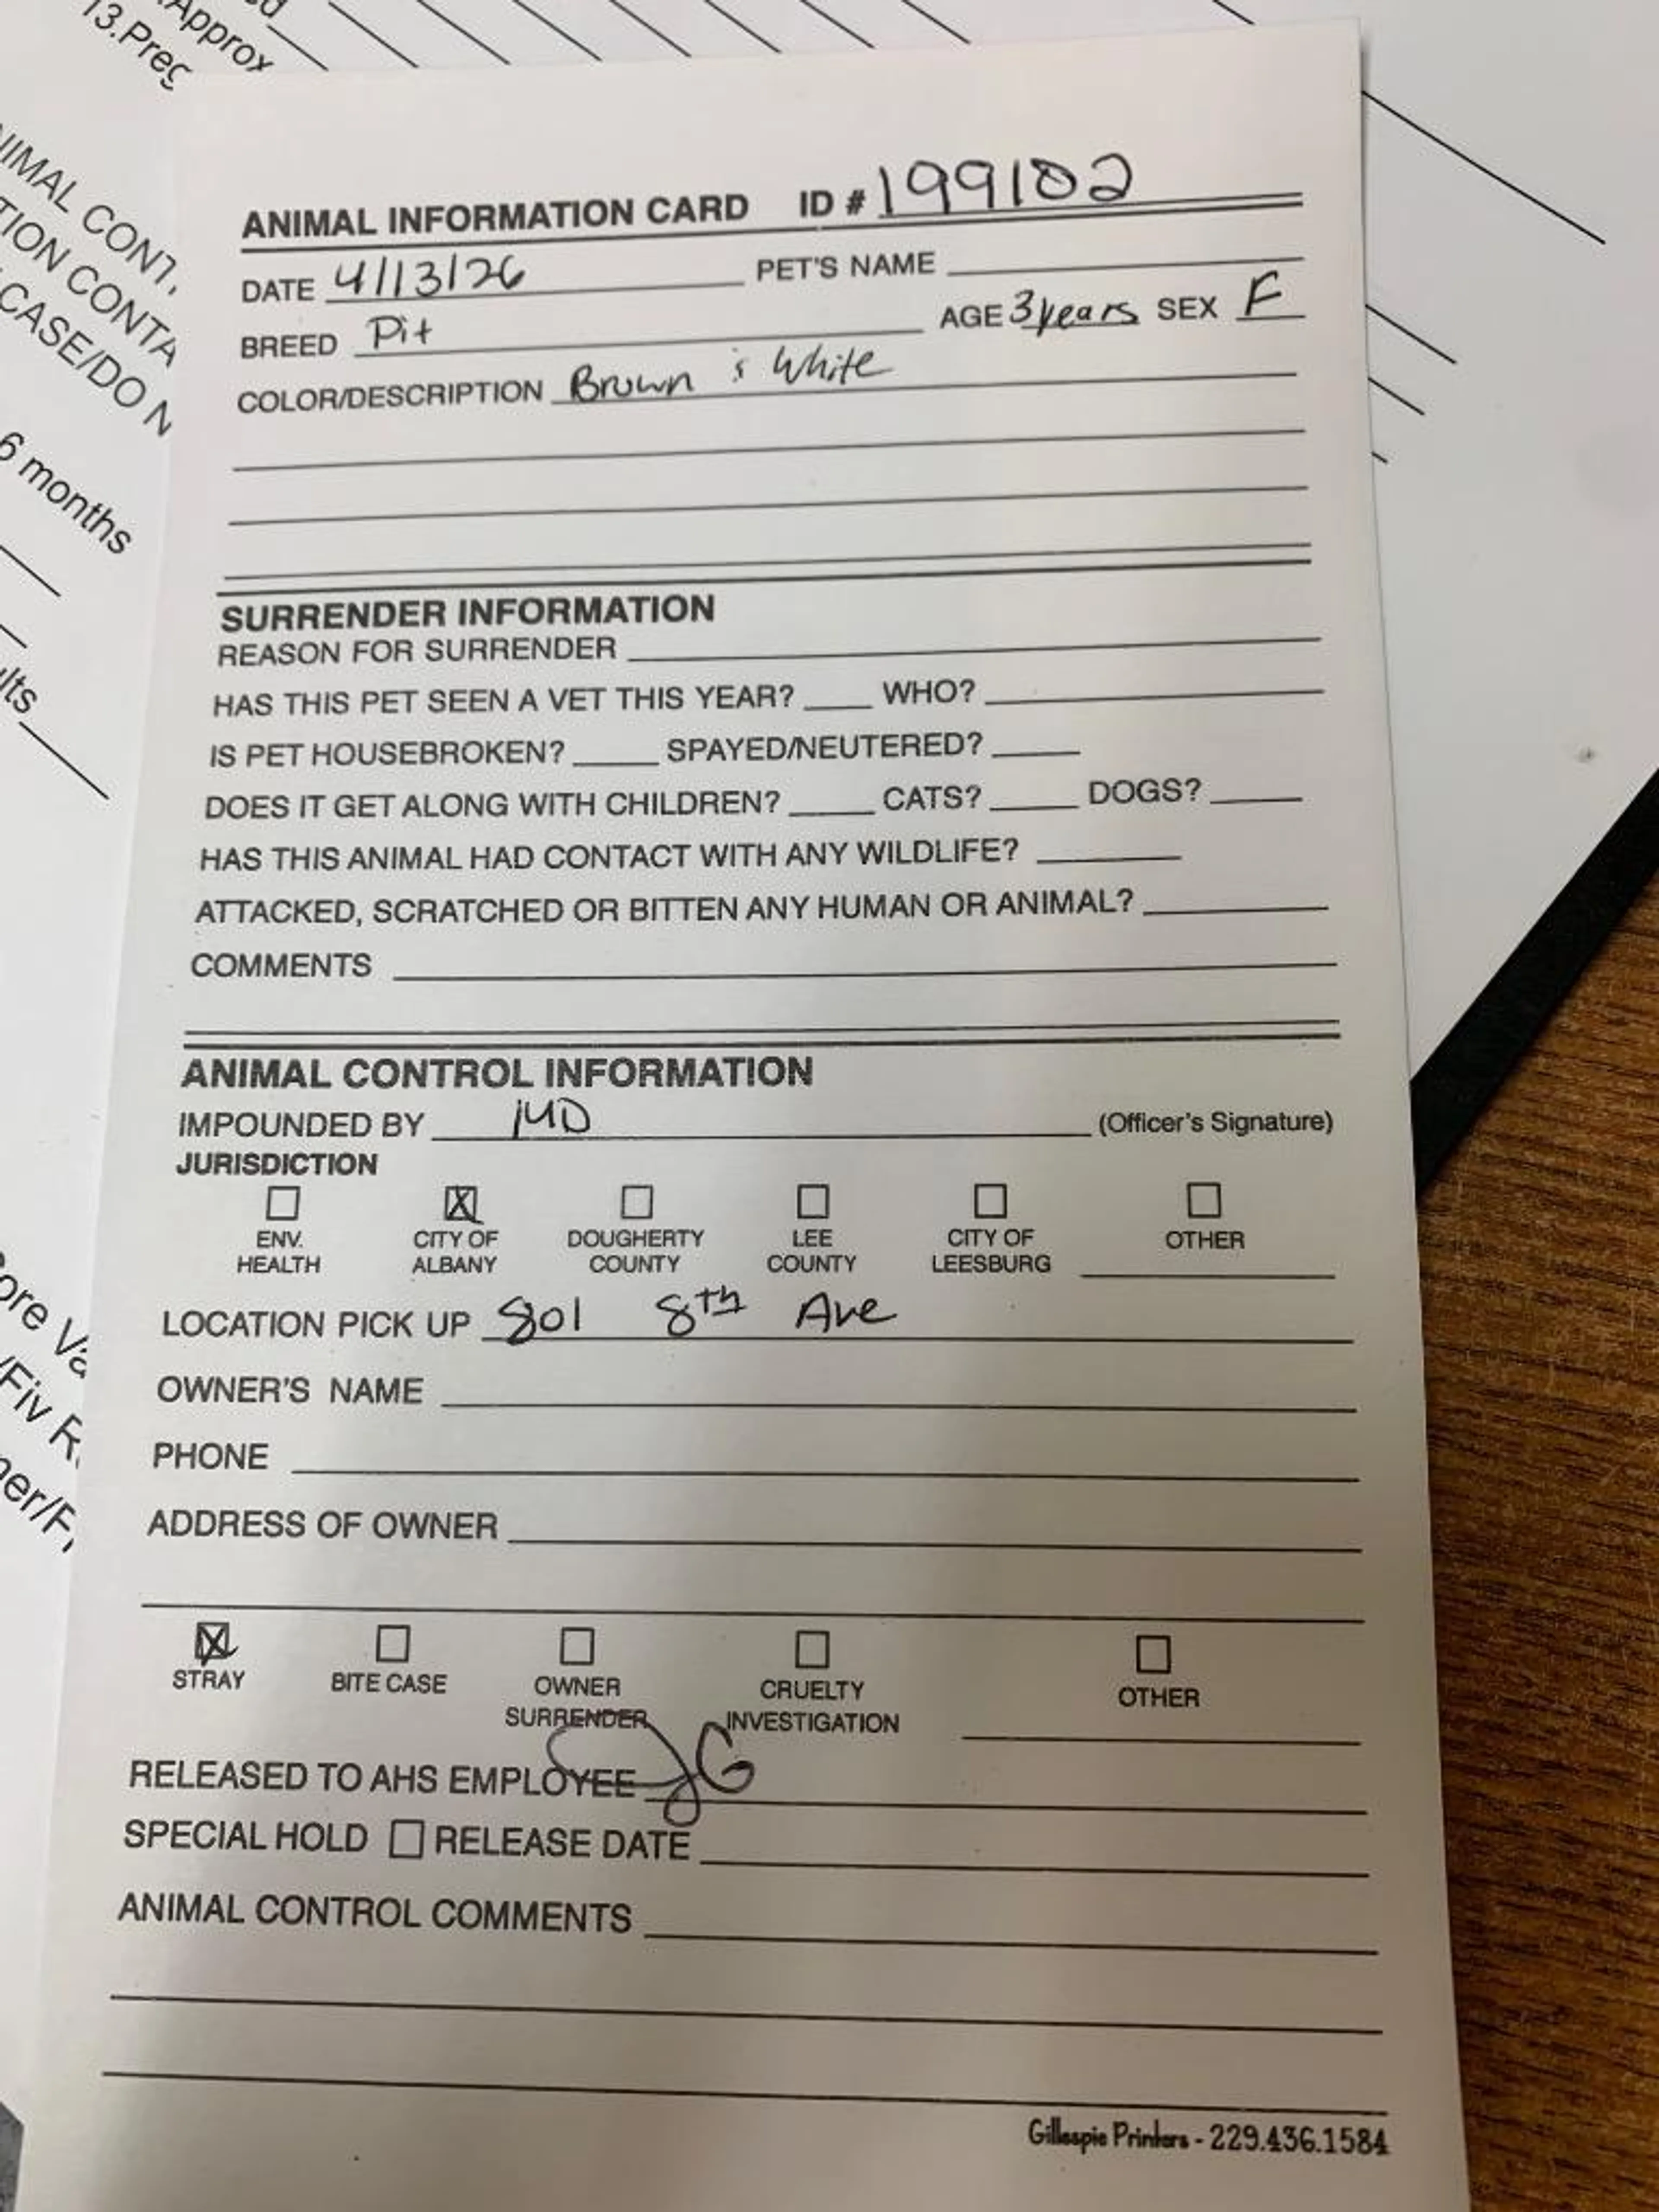 ed
Approx
13.Preg
ANIMAL CONT
TION CONTA
CASE/DO N
6 months
lts
ore Va
/Fiv R
ner/F
ANIMAL INFORMATION CARD ID # 199102
DATE 4/13/26 PET'S NAME
BREED Pit AGE 3 years SEX F
COLOR/DESCRIPTION Brown & White
SURRENDER INFORMATION
REASON FOR SURRENDER
HAS THIS PET SEEN A VET THIS YEAR? WHO?
IS PET HOUSEBROKEN? SPAYED/NEUTERED?
DOES IT GET ALONG WITH CHILDREN? CATS? DOGS?
HAS THIS ANIMAL HAD CONTACT WITH ANY WILDLIFE?
ATTACKED, SCRATCHED OR BITTEN ANY HUMAN OR ANIMAL?
COMMENTS
ANIMAL CONTROL INFORMATION
IMPOUNDED BY (Officer's Signature)
JURISDICTION
ENV. HEALTH
CITY OF ALBANY
DOUGHERTY COUNTY
LEE COUNTY
CITY OF LEESBURG
OTHER
LOCATION PICK UP 801 8th Ave
OWNER'S NAME
PHONE
ADDRESS OF OWNER
STRAY
BITE CASE
OWNER SURRENDER
CRUELTY INVESTIGATION
OTHER
RELEASED TO AHS EMPLOYEE JG
SPECIAL HOLD RELEASE DATE
ANIMAL CONTROL COMMENTS
Gillespie Printers - 229.436.1584